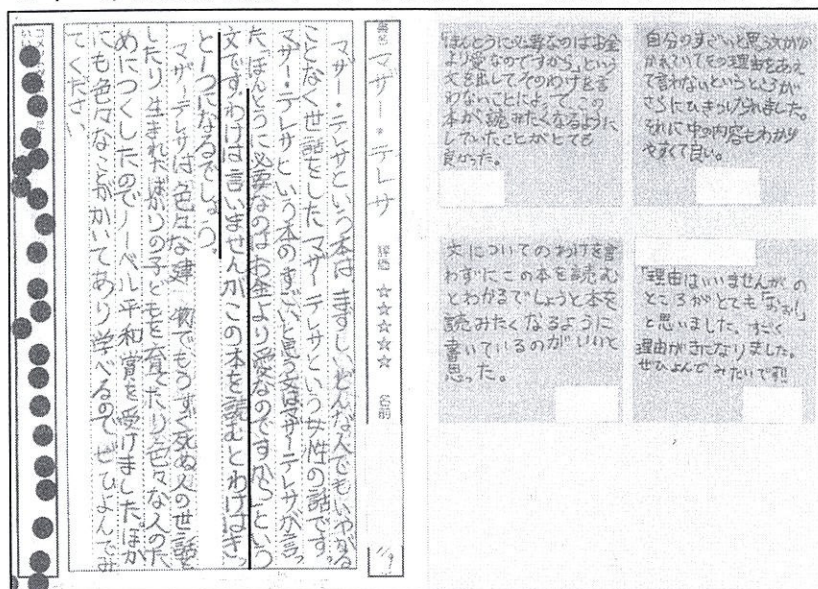 書名 マザー・テレサ 評価 ☆☆☆☆☆ 名前
マザー・テレサという本は、まずしいどんな人でもいやがる
ことなく世話をしたマザーテレサという女性の話です。
マザー・テレサという本のすごいと思う文はマザーテレサが言っ
た「ほんとうに必要なのはお金より愛なのですから」という
文です。わけは言いませんがこの本を読むとわけはきっ
と一つになるでしょう。
マザーテレサは色々な建物でもうすぐ死ぬ人の世話を
したり、生まれたばかりの子どもを育てたり、色々な人のた
めにつくしたのでノーベル平和賞を受けました。ほか
にも色々なことがかいてあり学べるのでぜひよんでみ
てください。
コメント
「ほんとうに必要なのはお金
より愛なのですから」という
文を出してそのわけを言
わないことによって、この
本が読みたくなるように
していたことがとても
良かった。
自分のすごいと思う文がか
かれていてその理由をあえ
て言わないというところが
さらにひきつけられました。
それに中の内容もわかり
やすくて良い。
文についてのわけを言
わずにこの本を読む
とわかるでしょうと本を
読みたくなるように
書いているのがいいと
思った。
「理由はいいませんが」の
ところがとても「おぉ!」
と思いました。すごく
理由がきになりました。
ぜひよんでみたいです!!